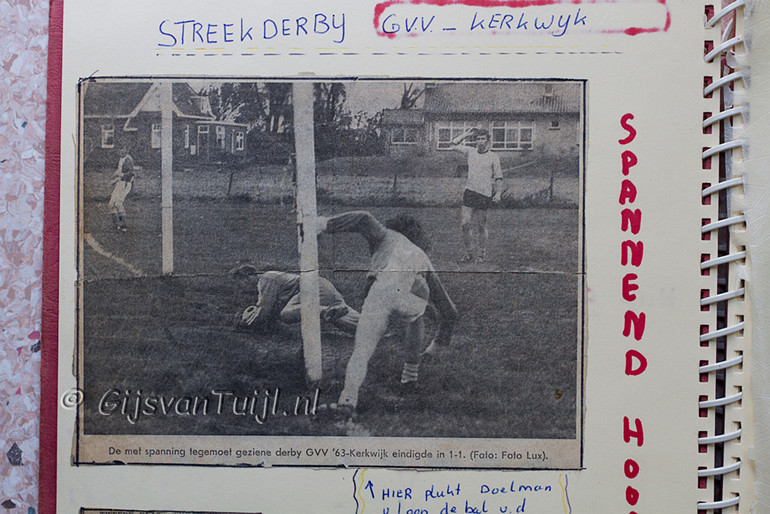 STREEKDERBY GVV. - KERKWYK
SPANNEND HOO
© GijsvanTuijl.nl
De met spanning tegemoet geziene derby GVV '63-Kerkwijk eindigde in 1-1. (Foto: Foto Lux).
↑ HIER plukt Doelman
de bal v.d